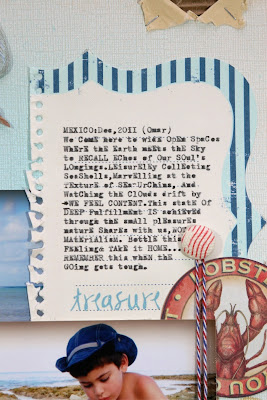 MEXICO:Dec,2011 (Omar)
We Come here to wide OpEn SpaCes
WhEre the Earth mEEts the Sky
to RECALL ECHes of Our SOul's
LOngings.LEisurELy ColLEcting
SeaShells,MarvElling at the
TExture of SEa-UrChins, And
Watching the ClOuds drift by
→WE FEEL CONTENT.This state Of
DEEP FulfillmENT IS achiEved
through the small plEasures
naturE Shares with us,NOT
MAteriAlism. Bottle this
FEElinG& TAKE it HOME...
REMEMBER this whEN the
GOing gets tough.
treasure
LOBST